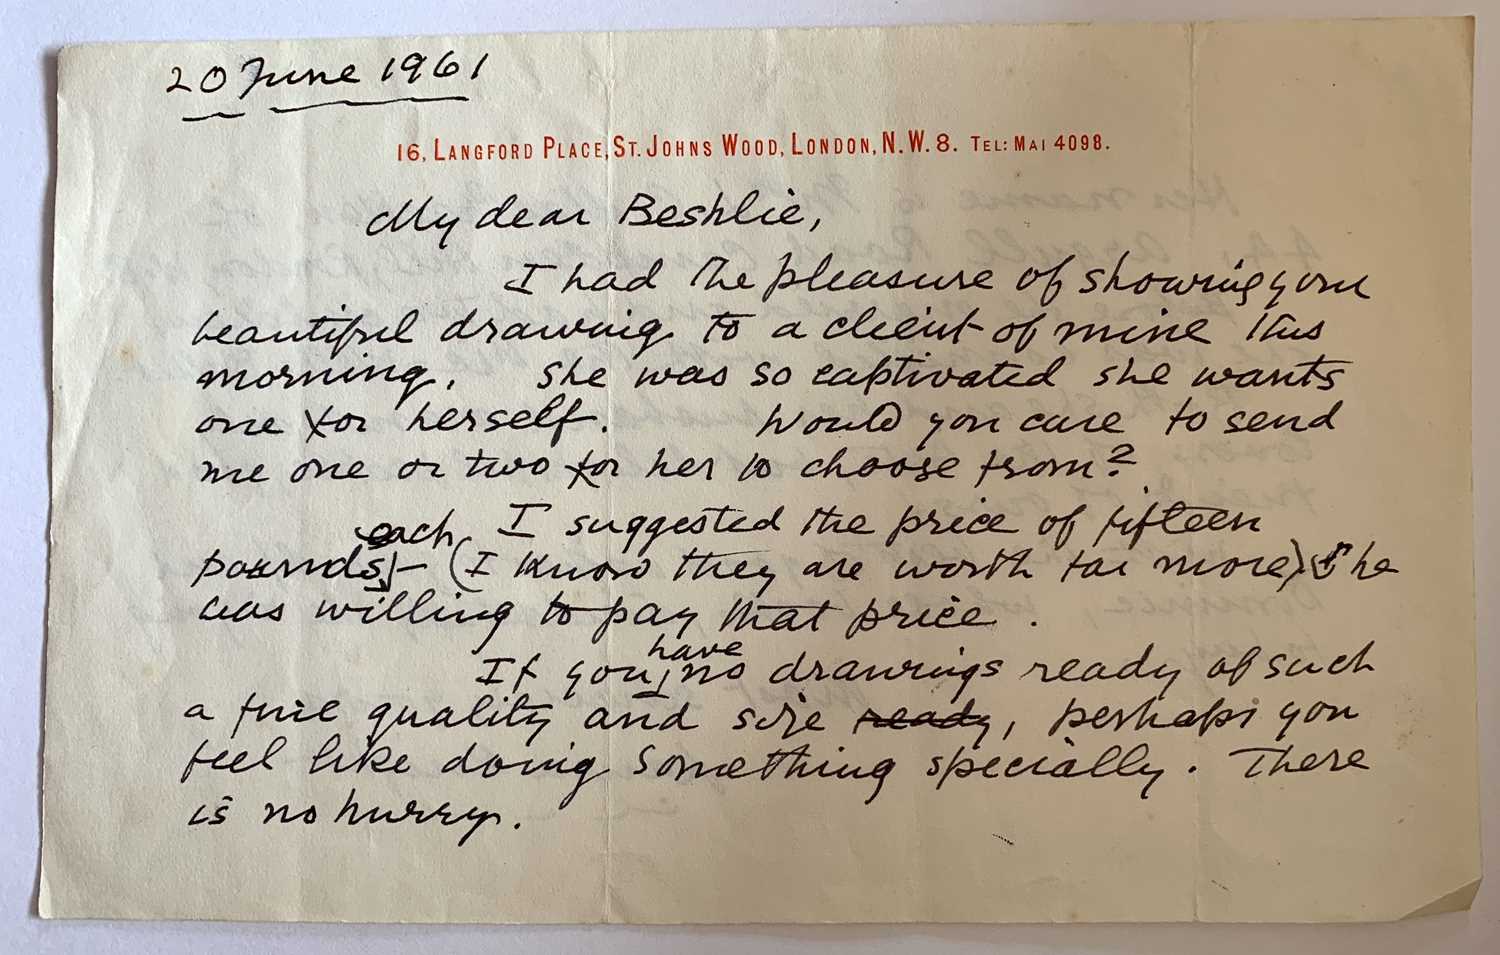 20 June 1961
16, Langford Place, St. Johns Wood, London, N.W.8. Tel: Mai 4098.
My dear Beshlie,
I had the pleasure of showing your
beautiful drawing to a client of mine this
morning. She was so captivated she wants
one for herself. Would you care to send
me one or two for her to choose from?
each I suggested the price of fifteen
pounds - (I know they are worth far more) She
was willing to pay that price.
have
If you no drawings ready of such
a fine quality and size ready, perhaps you
feel like doing something specially. There
is no hurry.